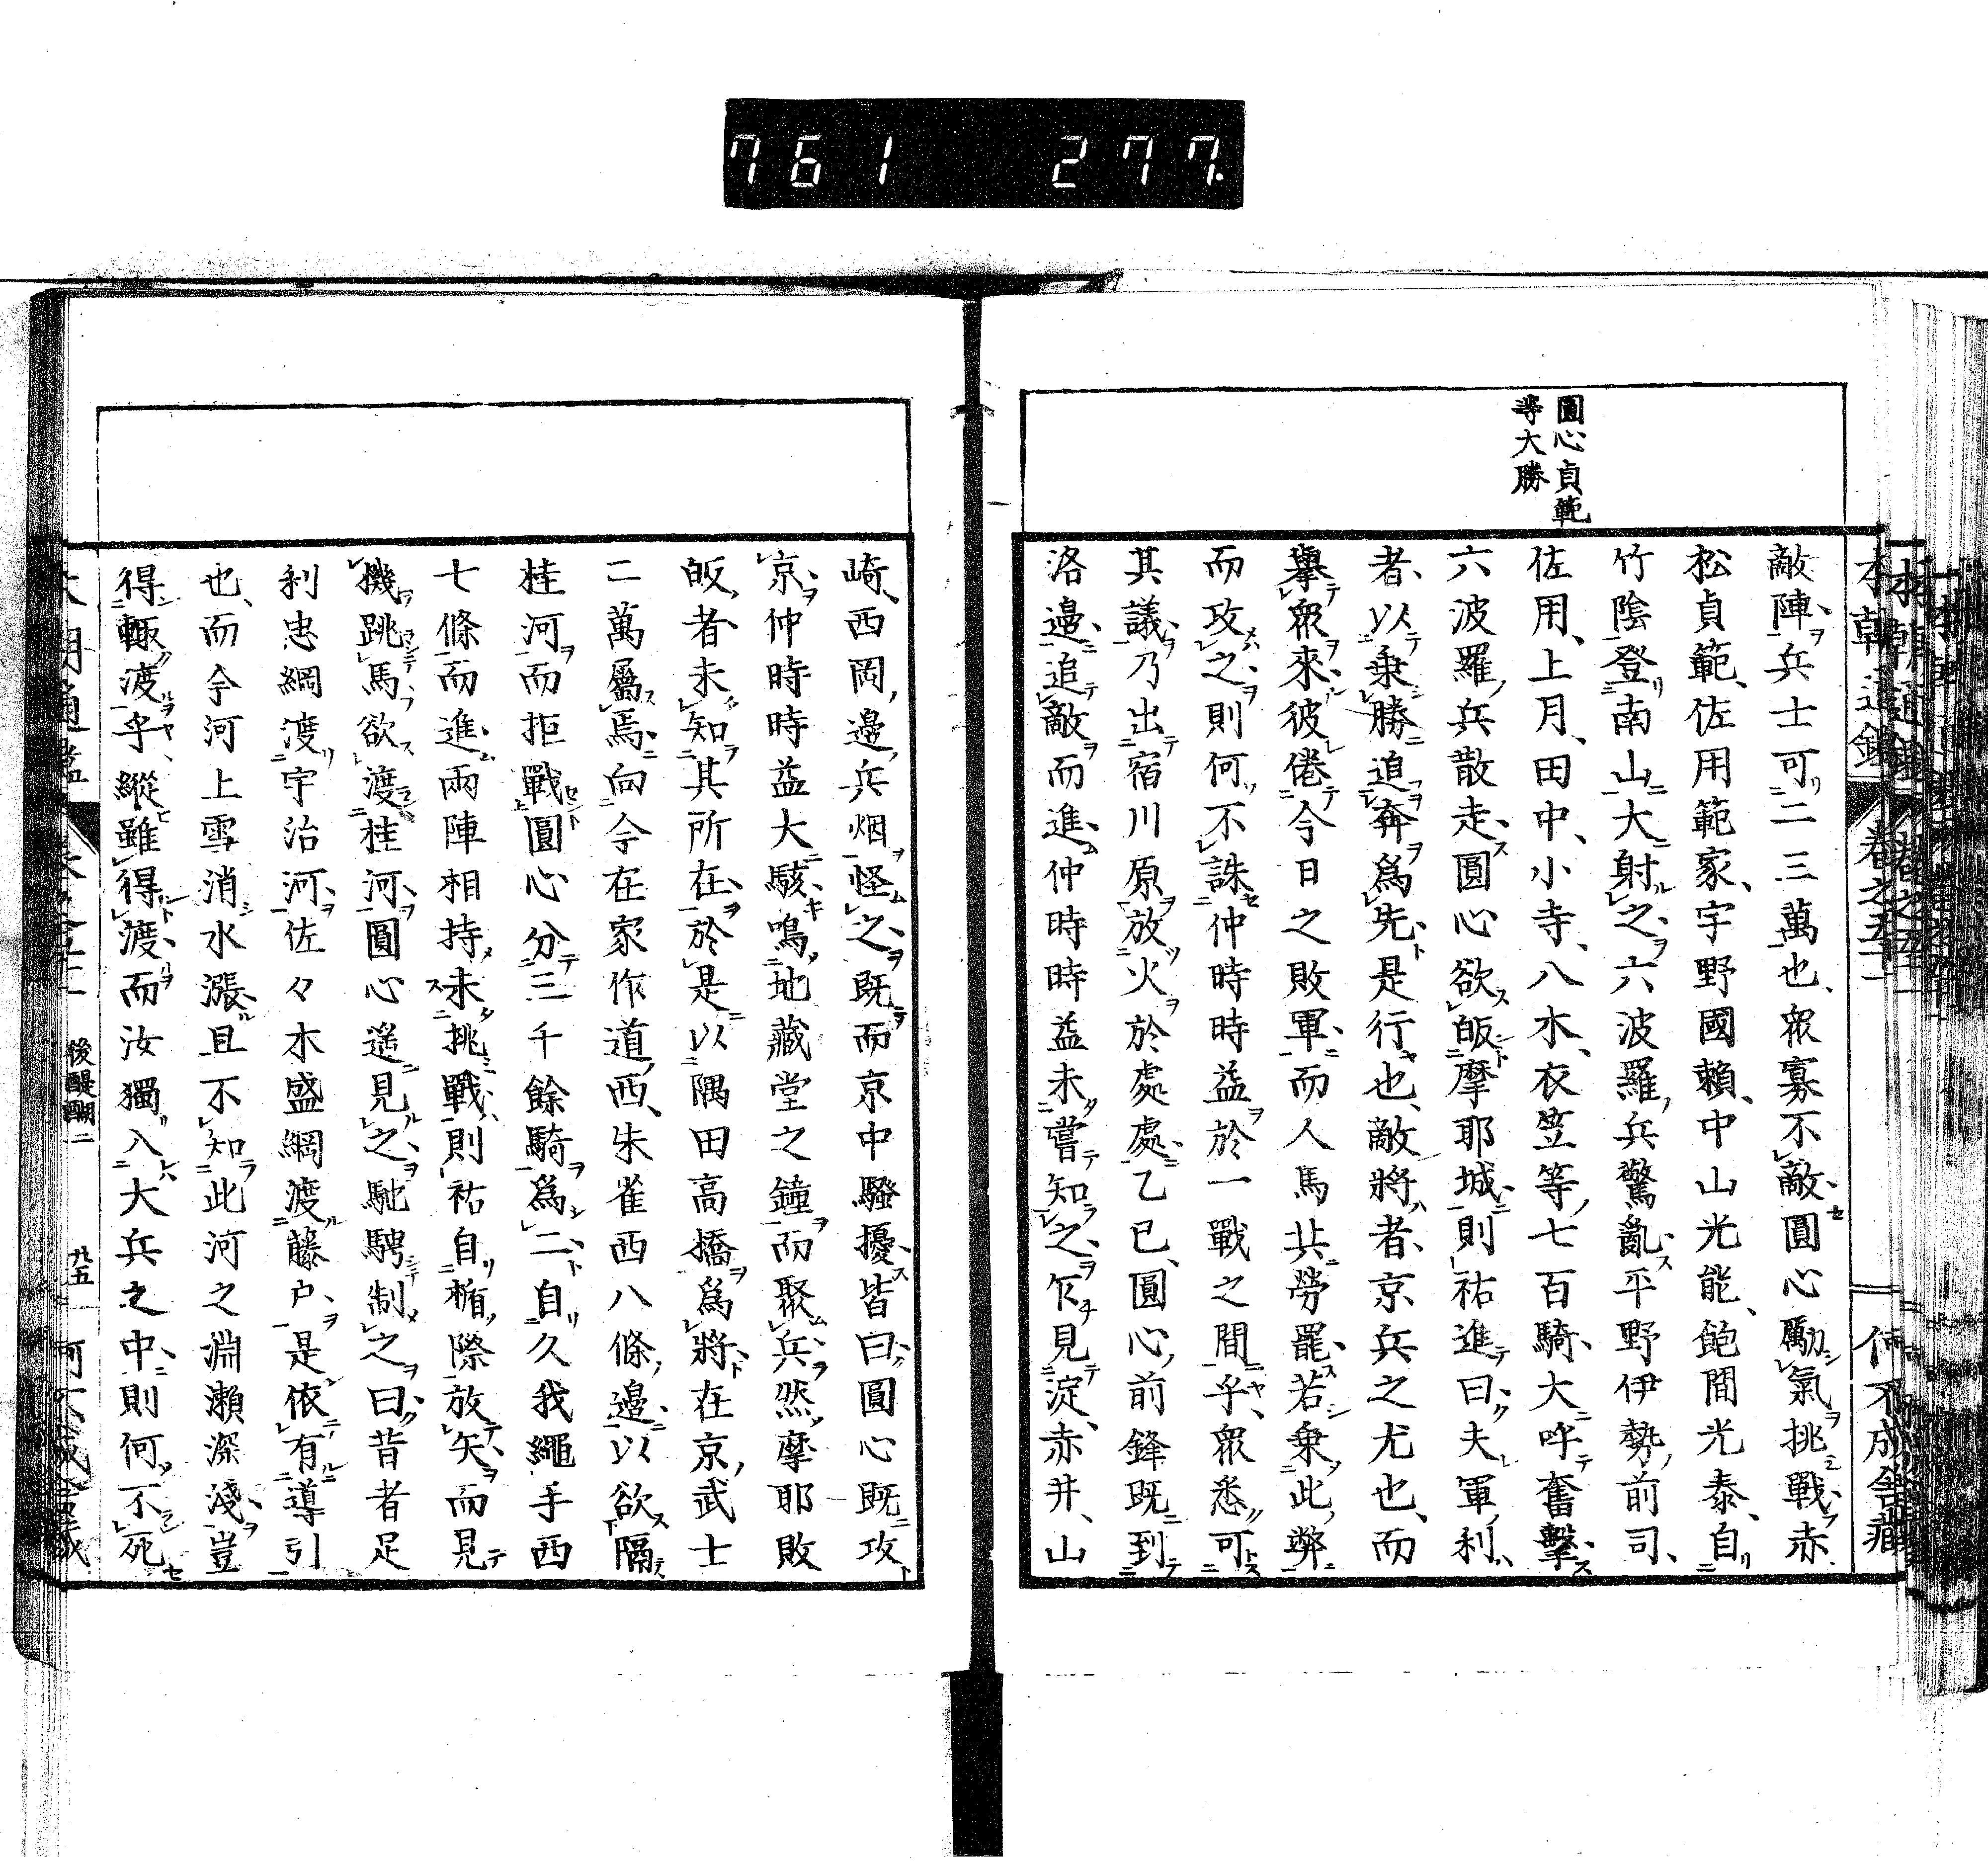 761 277.
圓心貞範
等大勝
敵陣兵士可二三萬也衆寡不敵圓心勵氣挑戰赤
松貞範佐用範家宇野國賴中山光能飽間光泰自
竹陰登南山大射之六波羅兵驚亂平野伊勢前司
佐用上月田中小寺八木衣笠等七百騎大呼奮擊
六波羅兵散走圓心欲皈摩耶城則祐進曰夫軍利
者以乘勝追奔爲先是行也敵將者京兵之尤也而
擧衆來彼倦今日之敗軍而人馬共勞罷若乘此弊
而攻之則何不誅仲時時益於一戰之間乎衆悉可
其議乃出宿川原放火於處處乙巳圓心前鋒既到
洛邊追敵而進仲時時益未嘗知之乍見淀赤井山
崎西岡邊兵烟怪之既而京中騷擾皆曰圓心既攻
京仲時時益大駭鳴地藏堂之鐘而聚兵然摩耶敗
皈者未知其所在於是以隅田高橋爲將在京武士
二萬屬焉向今在家作道西朱雀西八條邊以欲隔
桂河而拒戰圓心分三千餘騎爲二自久我繩手西
七條而進兩陣相持未挑戰則祐自楯際放矢而見
機跳馬欲渡桂河圓心遙見之馳騁制之曰昔者足
利忠綱渡宇治河佐々木盛綱渡藤戶是依有導引
也而今河上雪消水漲且不知此河之淵瀨深淺豈
得輙渡乎縱雖得渡而汝獨入大兵之中則何不死
後醍醐二
九五